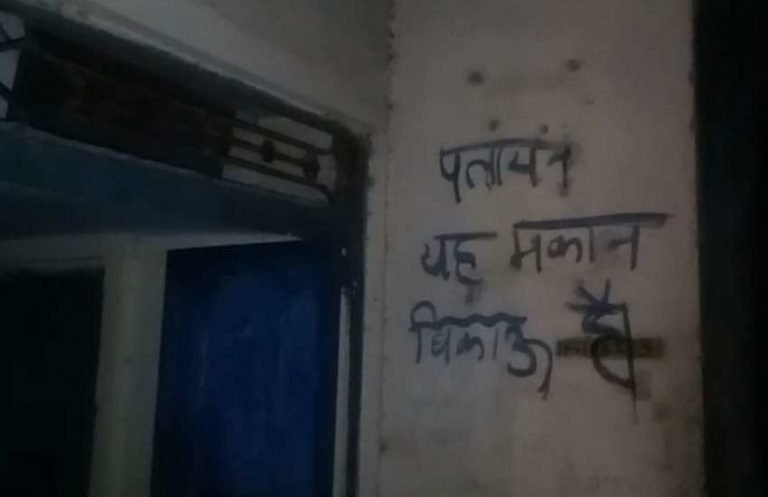 पलायंन
यह मकान
बिकाऊ है